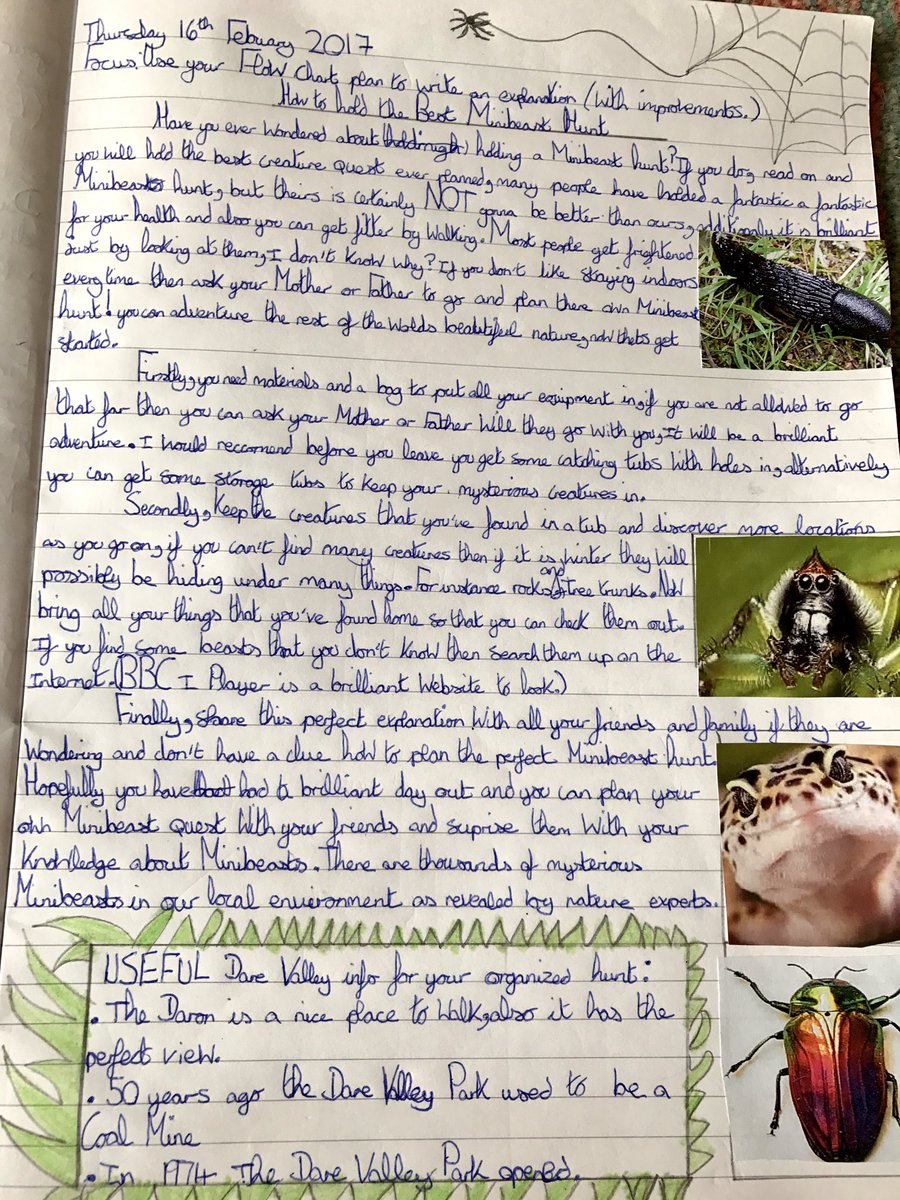 Thursday 16th Febuary 2017
Focus: Use your Flow chart plan to write an explanation (With improvements.)
How to hold the Best Minibeast Hunt
Have you ever wondered about holding a Minibeast hunt? If you do, read on and
you will hold the best creature quest ever planned, many people have holded a fantastic a fantastic
Minibeasts hunt, but theirs is certainly NOT gonna be better than ours, additionaly it is brilliant
for your health and also you can get fitter by walking. Most people get frightened
Just by looking at them, I don't know why? If you don't like staying indoors
everytime then ask your Mother or Father to go and plan there own Minibeast
hunt! you can adventure the rest of the worlds beautiful nature, now thets get
started.
Firstly, you need materials and a bag to put all your equipment in, if you are not allowed to go
that far then you can ask your Mother or Father Will they go with you, It will be a brilliant
adventure. I would reccomend before you leave you get some catching tubs with holes in, alternatively
you can get some storage tubs to keep your mysterious creatures in.
Secondly, Keep the creatures that you've found in a tub and discover more locations
as you go on, if you can't find many creatures then if it is winter they will
possibly be hiding under many things. For instance rocks and tree trunks. Now
bring all your things that you've found home so that you can check them out.
If you find some beasts that you don't know then search them up on the
Internet. (BBC I Player is a brilliant Website to look.)
Finally, share this perfect explanation With all your friends and family if they are
Wondering and don't have a clue how to plan the perfect Minibeast hunt.
Hopefully you have had a brilliant day out and you can plan your
own Minibeast Quest With your friends and suprise them With your
Knowledge about Minibeasts. There are thousands of mysterious
Minibeasts in our local environment as revealed by nature experts.
USEFUL Dare Valley info for your organized hunt:
• The Daron is a nice place to Walk, also it has the
perfect view.
• 50 years ago the Dare Valley Park used to be a
Coal Mine
• In 1974 The Dare Valley Park opened.